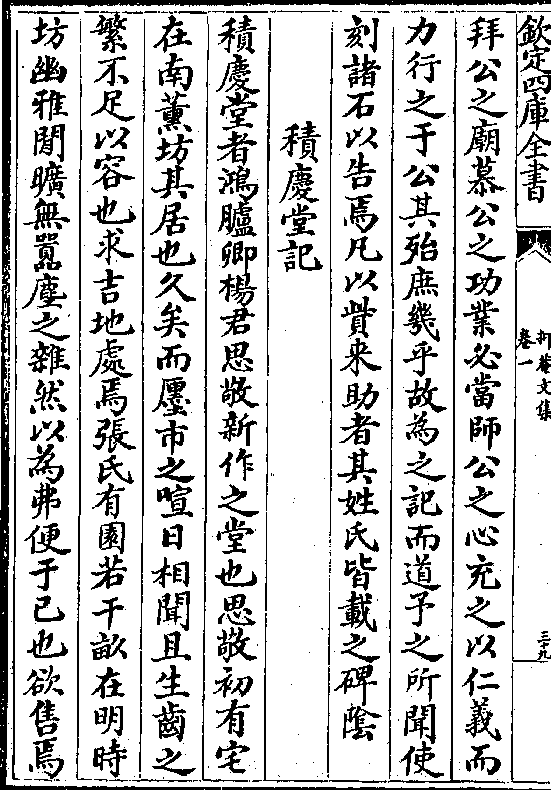 欽定四庫全書
柯菴文集
卷一
三十九
拜公之廟慕公之功業必當師公之心充之以仁義而
力行之于公其殆庶幾乎故為之記而道予之所聞使
刻諸石以告焉凡以貲來助者其姓氏皆載之碑隂
積慶堂記
積慶堂者鴻臚卿楊君思敬新作之堂也思敬初有宅
在南薫坊其居也久矣而㕓市之喧日相聞且生齒之
繁不足以容也求吉地處焉張氏有園若干畝在明時
坊幽雅閒曠無囂塵之雜然以為弗便于已也欲售焉